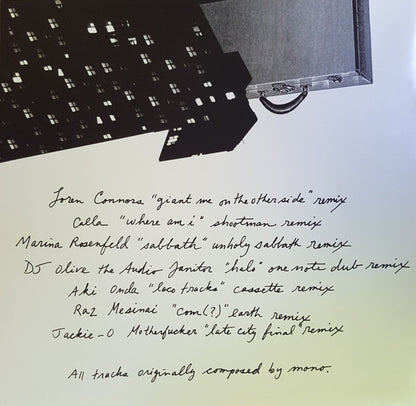 Loren Connors "giant me on the other side" remix
Calla "where am i" shootman remix
Marina Rosenfeld "sabbath" unholy sabbath remix
DJ Olive the Audio Janitor "halo" one note dub remix
Aki Onda "loco tracks" cassette remix
Raz Mesinai "com(?)" earth remix
Jackie-O Motherfucker "late city final" remix
All tracks originally composed by mono.